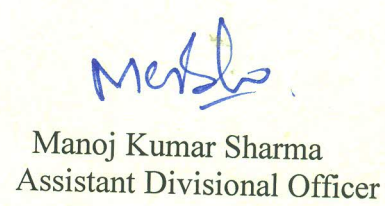 Manoj Kumar Sharma
Assistant Divisional Officer